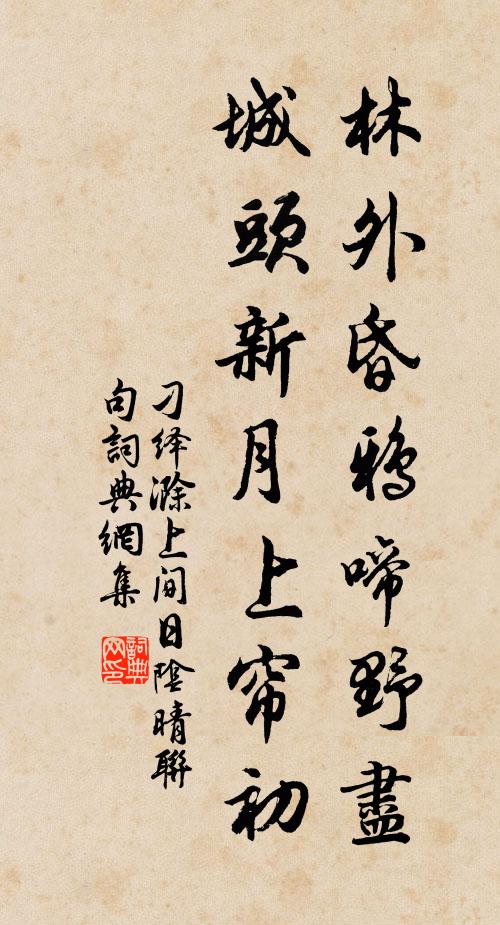 林外昏鴉啼野盡
城頭新月上帘初
刁绎滁上间日陰晴聯
句詞典網集
詞典网印